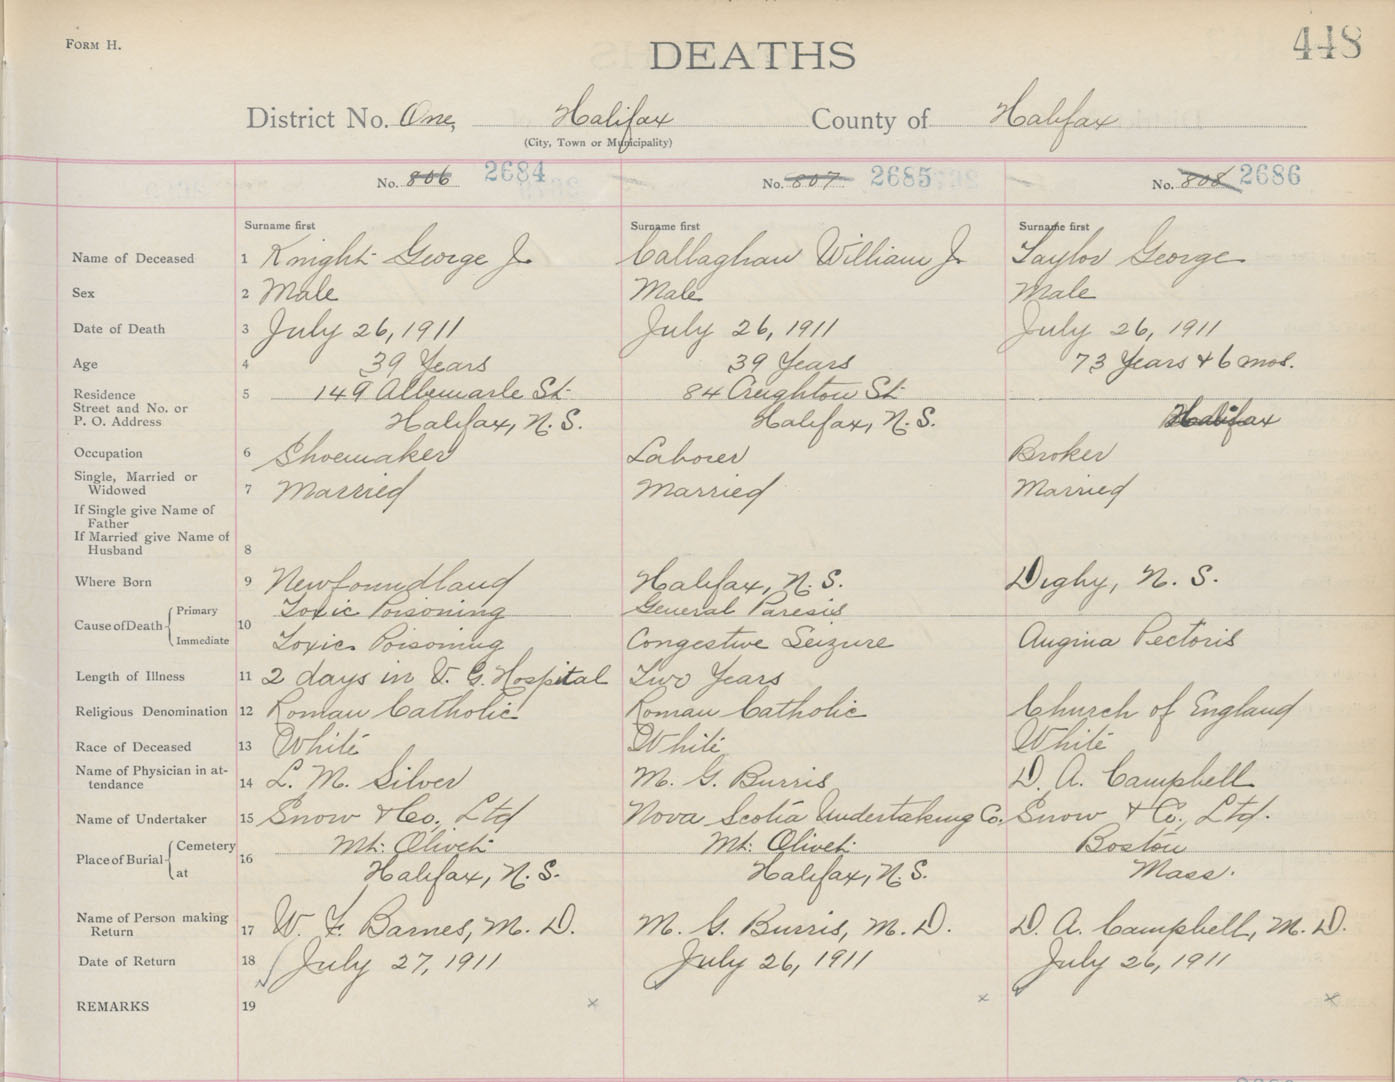 FORM H.
DEATHS
448
District No. One, Halifax County of Halifax
(City, Town or Municipality)
No. 806 2684 No. 807 2685 No. 808 2686
Surname first Surname first Surname first
Name of Deceased 1 Knight George J. Callaghan William J. Taylor George
Sex 2 Male Male Male
Date of Death 3 July 26, 1911 July 26, 1911 July 26, 1911
Age 4 39 Years 39 Years 73 Years & 6 mos.
Residence 5 149 Albemarle St. 84 Creighton St.
Street and No. or
P. O. Address Halifax, N. S. Halifax, N. S. Halifax
Occupation 6 Shoemaker Laborer Broker
Single, Married or
Widowed 7 Married Married Married
If Single give Name of
Father
If Married give Name of
Husband 8
Where Born 9 Newfoundland Halifax, N. S. Digby, N. S.
Cause of Death 10 Primary Toxic Poisoning General Paresis
Immediate Toxic Poisoning Congestive Seizure Angina Pectoris
Length of Illness 11 2 days in V. G. Hospital Two Years
Religious Denomination 12 Roman Catholic Roman Catholic Church of England
Race of Deceased 13 White White White
Name of Physician in at-
tendance 14 L. M. Silver M. G. Burris D. A. Campbell
Name of Undertaker 15 Snow & Co. Ltd Nova Scotia Undertaking Co. Snow & Co., Ltd.
Place of Burial 16 Cemetery Mt. Olivet Mt. Olivet Boston
at Halifax, N. S. Halifax, N. S. Mass.
Name of Person making
Return 17 W. F. Barnes, M. D. M. G. Burris, M. D. D. A. Campbell, M. D.
Date of Return 18 July 27, 1911 July 26, 1911 July 26, 1911
REMARKS 19 x x x